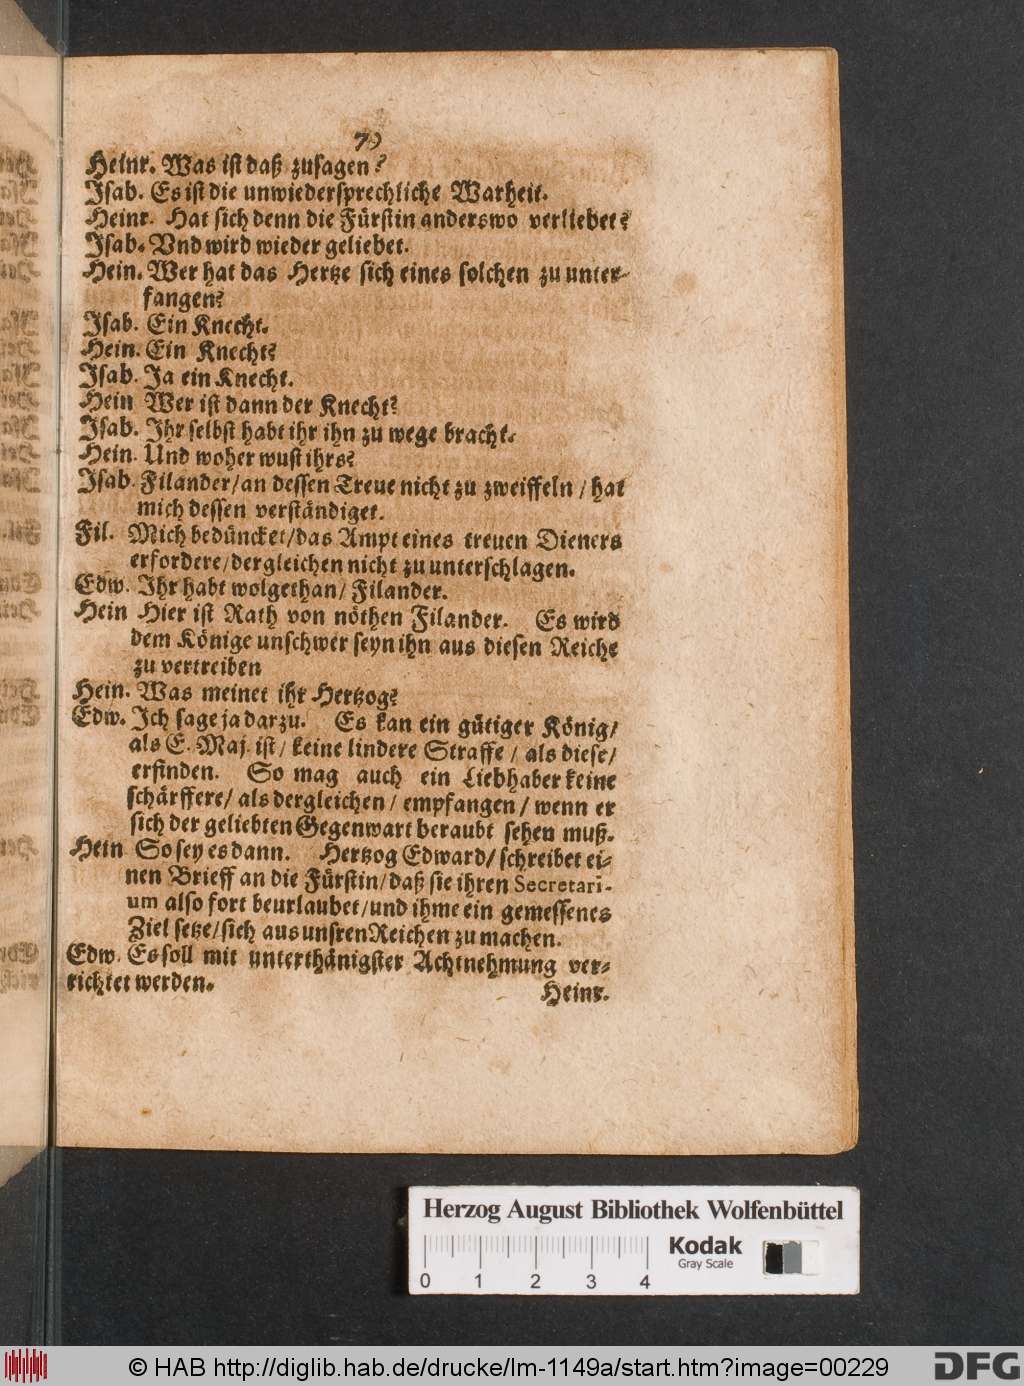 79
Heinr. Was ist daß zusagen?
Isab. Es ist die unwiedersprechliche Warheit.
Heinr. Hat sich denn die Fürstin anderswo verliebet?
Isab. Vnd wird wieder geliebet.
Hein. Wer hat das Hertze sich eines solchen zu unter-
fangen?
Isab. Ein Knecht.
Hein. Ein Knecht?
Isab. Ja ein Knecht.
Hein Wer ist dann der Knecht?
Isab. Ihr selbst habt ihr ihn zu wege bracht.
Hein. Und woher wust ihrs?
Isab. Filander/ an dessen Treue nicht zu zweiffeln / hat
mich dessen verständiget.
Fil. Mich bedüncket/ das Ampt eines treuen Dieners
erfordere/ dergleichen nicht zu unterschlagen.
Edw. Ihr habt wolgethan/ Filander.
Hein Hier ist Rath von nöthen Filander. Es wird
dem Könige unschwer seyn ihn aus diesen Reiche
zu vertreiben
Hein. Was meinet ihr Hertzog?
Edw. Ich sage ja darzu. Es kan ein gütiger König/
als E. Maj. ist/ keine lindere Straffe / als diese/
erfinden. So mag auch ein Liebhaber keine
schärffere/ als dergleichen / empfangen / wenn er
sich der geliebten Gegenwart beraubt sehen muß.
Hein So sey es dann. Hertzog Edward/ schreibet ei-
nen Brieff an die Fürstin/ daß sie ihren Secretari-
um also fort beurlaubet/ und ihme ein gemessenes
Ziel setze/ sich aus unsren Reichen zu machen.
Edw. Es soll mit unterthänigster Achtnehmung ver-
richtet werden.
Heinr.
Herzog August Bibliothek Wolfenbüttel
Kodak
Gray Scale
0 1 2 3 4
© HAB http://diglib.hab.de/drucke/lm-1149a/start.htm?image=00229
DFG